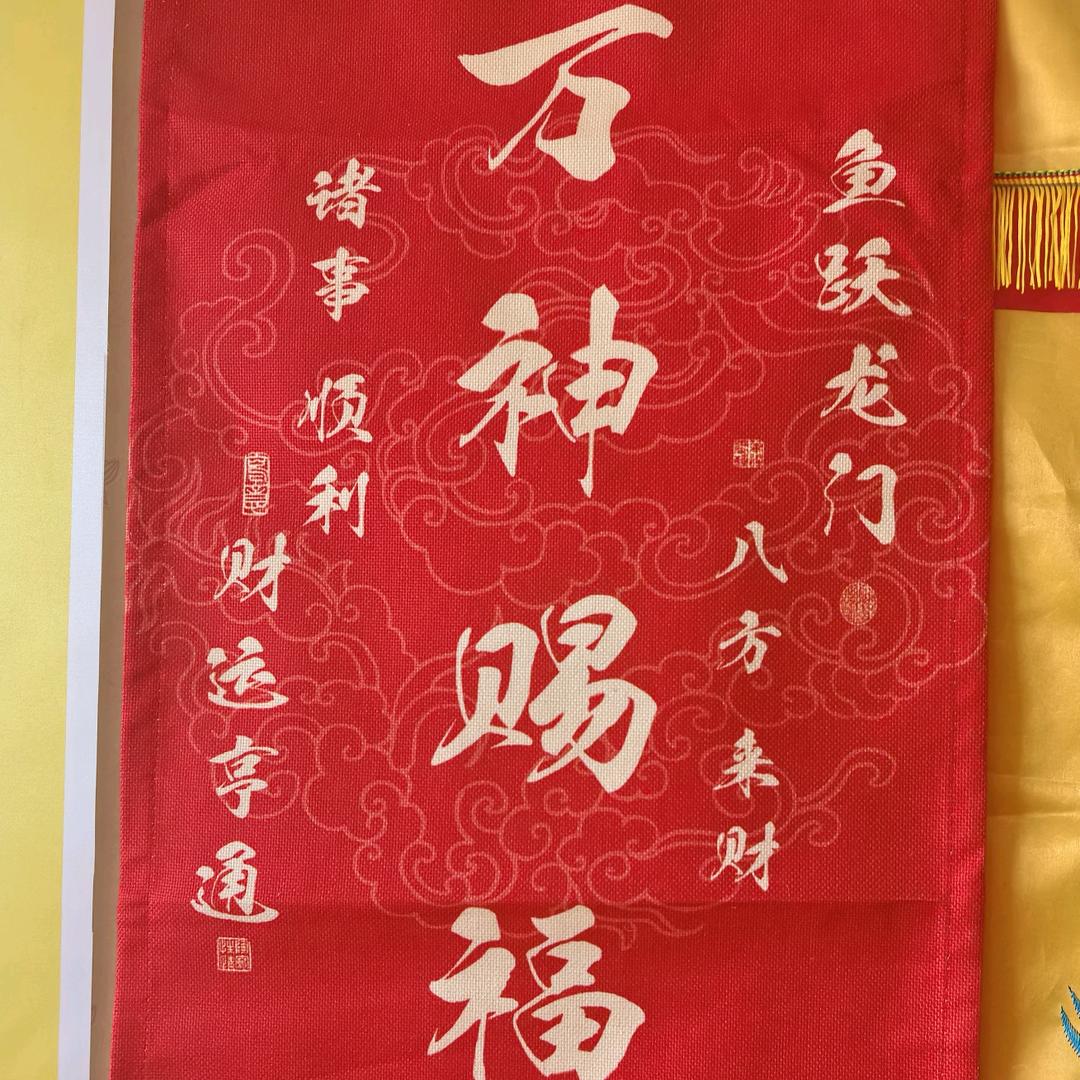 鱼跃龙门
八方来财
万神赐福
诸事顺利
财运亨通